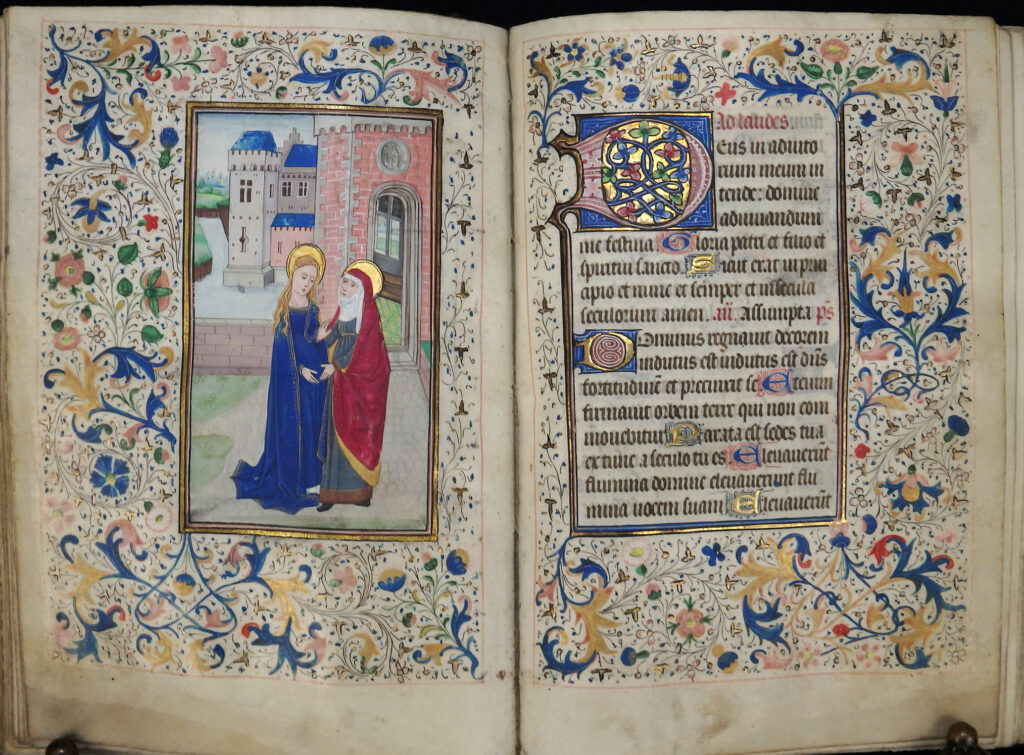 Ad laudes
Eus in adiuto
rium meum in
tende: domine
adiuuandum
me festina Gloria patri et filio et
spiritui sancto Sicut erat in prin
cipio et nunc et semper et in secula
seculorum amen. an̄. Assumpta ps
Dominus regnauit decorem
indutus est indutus est dn̄s
fortitudinē et precinxit se Etenim
firmauit orbem terre qui non com
mouebitur Parata est sedes tua
ex tunc a seculo tu es Eleuauerunt
flumina domine eleuauerunt flu
mina uocem suam Eleuauerūt